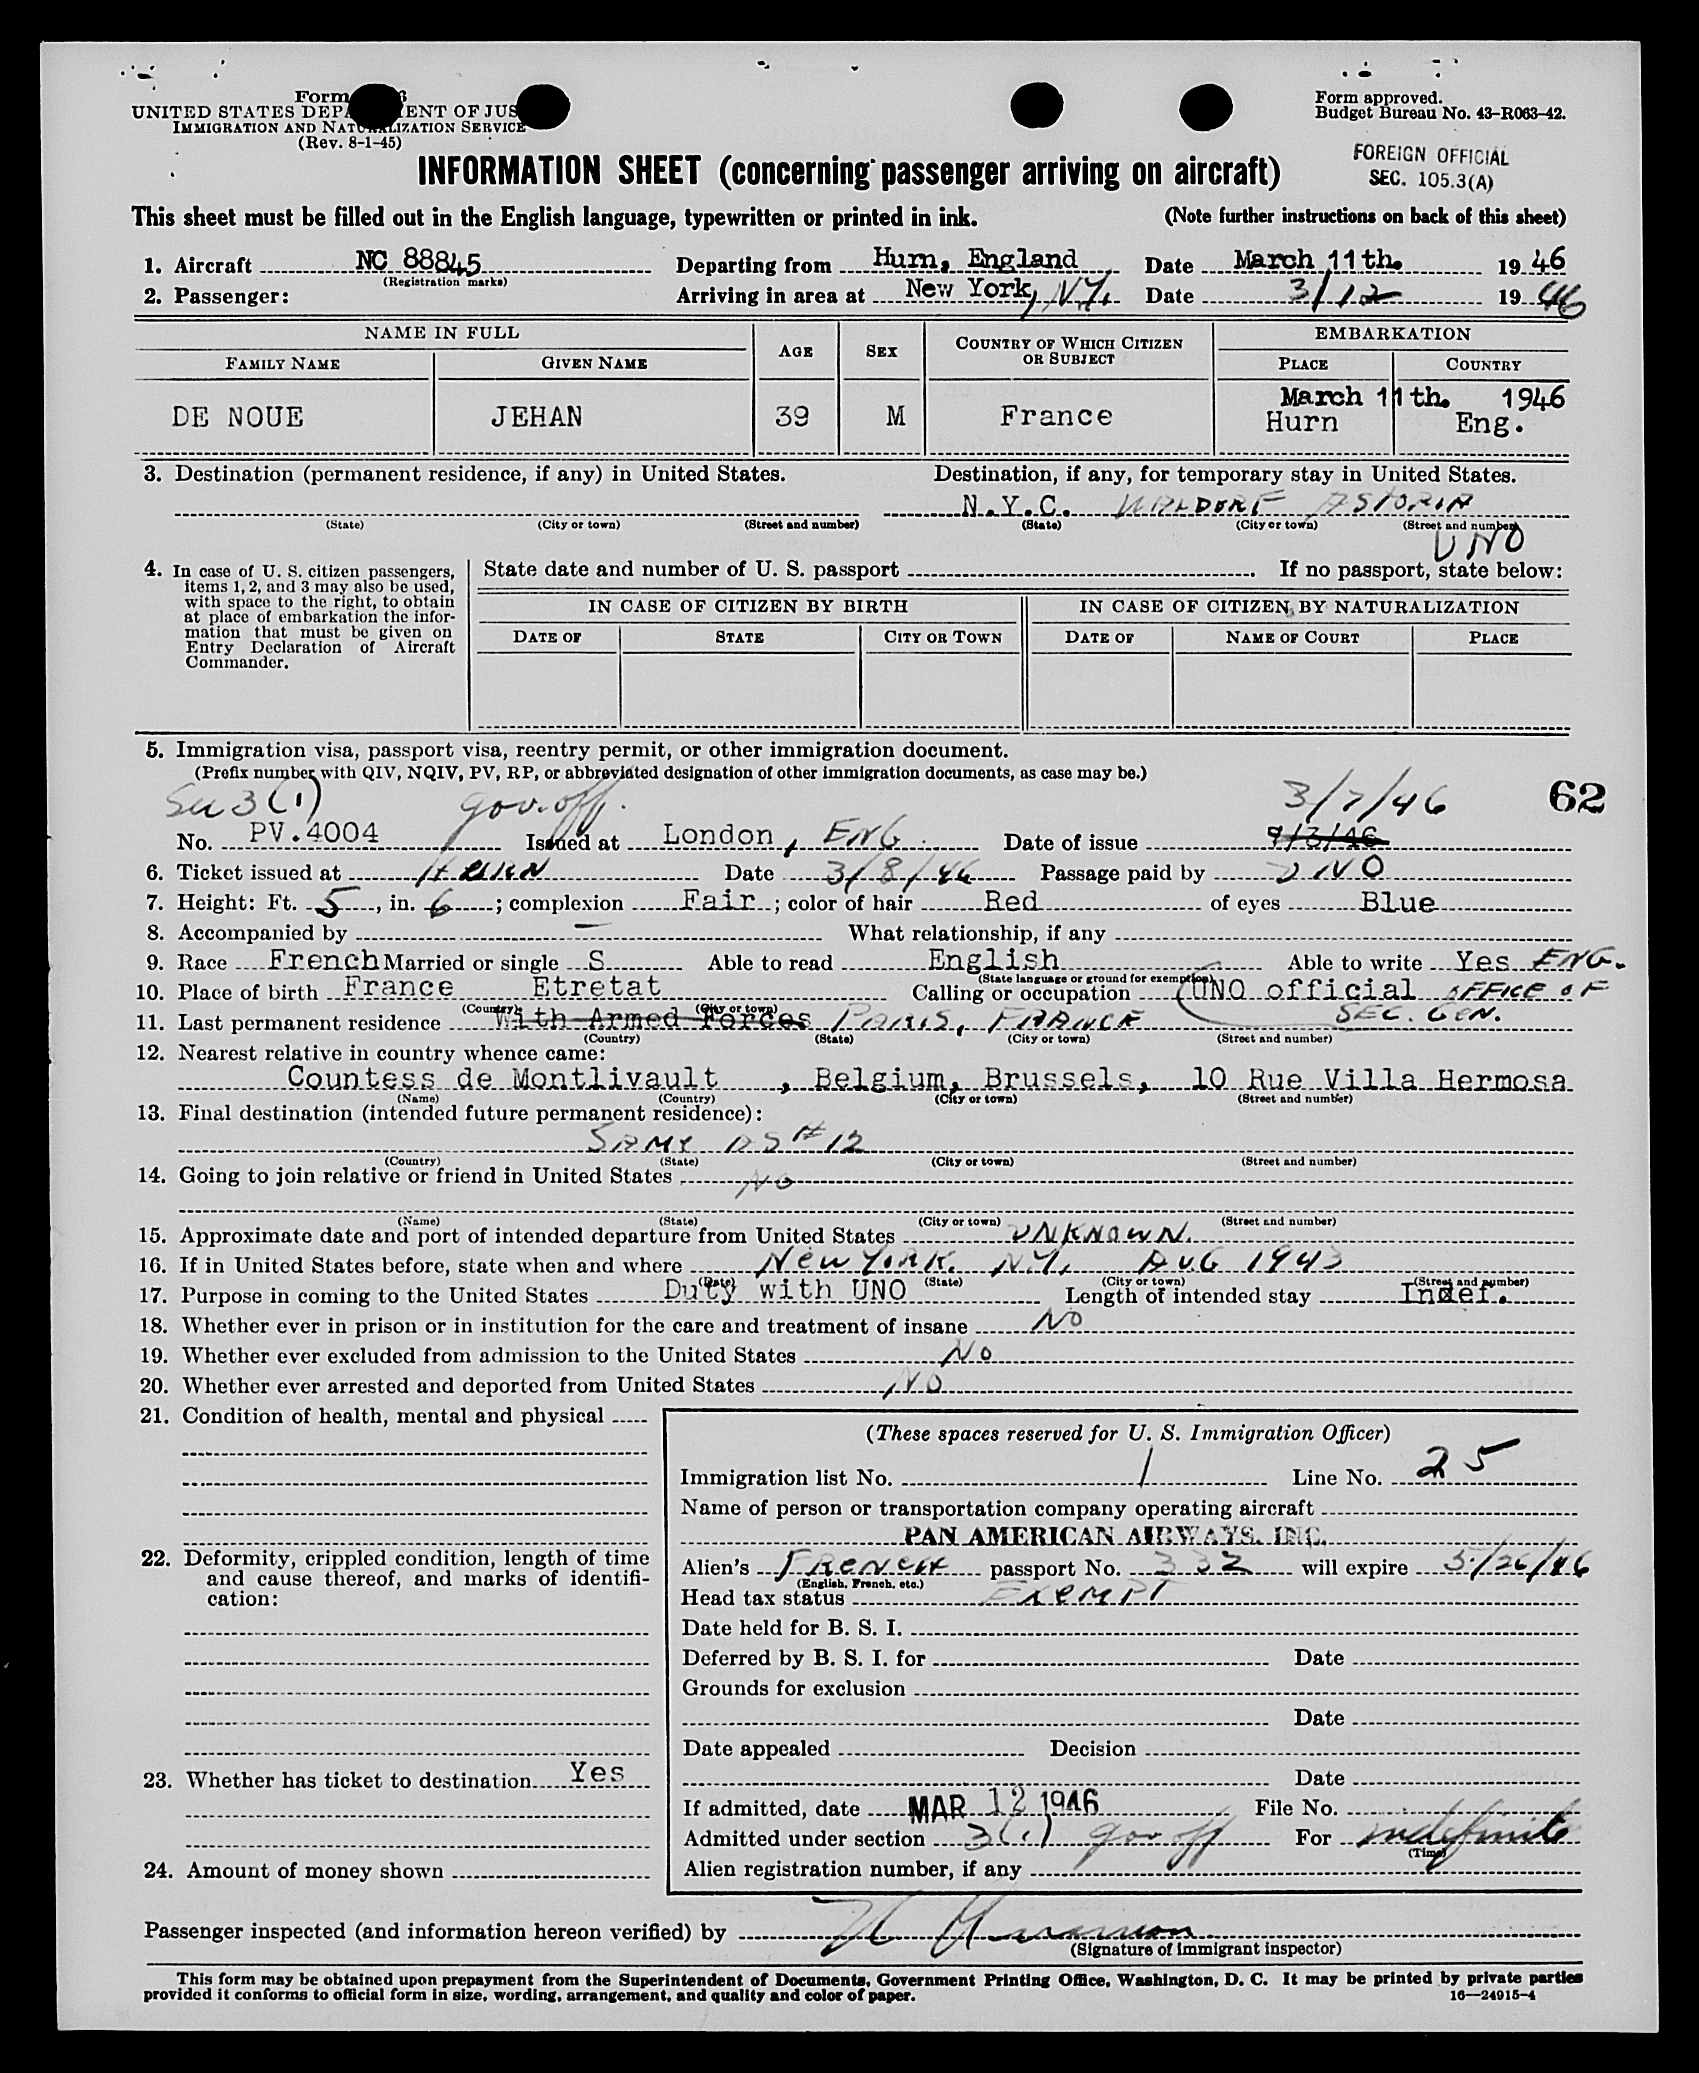 Form
UNITED STATES DEPA ENT OF JUS
IMMIGRATION AND NATURALIZATION SERVICE
(Rev. 8-1-45)
Form approved.
Budget Bureau No. 43-R063-42.
FOREIGN OFFICIAL
SEC. 105.3(A)
INFORMATION SHEET (concerning passenger arriving on aircraft)
This sheet must be filled out in the English language, typewritten or printed in ink. (Note further instructions on back of this sheet)
1. Aircraft NC 88845 Departing from Hurn, England Date March 11th. 1946
(Registration marks)
2. Passenger: Arriving in area at New York, N.Y. Date 3/12 1946
NAME IN FULL AGE SEX COUNTRY OF WHICH CITIZEN OR SUBJECT EMBARKATION
FAMILY NAME GIVEN NAME PLACE COUNTRY
March 11th. 1946
DE NOUE JEHAN 39 M France Hurn Eng.
3. Destination (permanent residence, if any) in United States. Destination, if any, for temporary stay in United States.
N.Y.C. WALDORF ASTORIA
(State) (City or town) (Street and number) (State) (City or town) (Street and number)
UNO
4. In case of U. S. citizen passengers, items 1, 2, and 3 may also be used, with space to the right, to obtain at place of embarkation the information that must be given on Entry Declaration of Aircraft Commander.
State date and number of U. S. passport If no passport, state below:
IN CASE OF CITIZEN BY BIRTH IN CASE OF CITIZEN BY NATURALIZATION
DATE OF STATE CITY OR TOWN DATE OF NAME OF COURT PLACE
5. Immigration visa, passport visa, reentry permit, or other immigration document.
(Prefix number with QIV, NQIV, PV, RP, or abbreviated designation of other immigration documents, as case may be.)
Sec 3(1) gov. off. 3/7/46 62
No. PV.4004 Issued at London, ENG. Date of issue 7/3/46
6. Ticket issued at HURN Date 3/8/46 Passage paid by UNO
7. Height: Ft. 5, in. 6; complexion Fair; color of hair Red of eyes Blue
8. Accompanied by — What relationship, if any
9. Race French Married or single S Able to read English Able to write Yes ENG.
(State language or ground for exemption)
10. Place of birth France Etretat Calling or occupation (UNO official OFFICE OF
(Country) (City or town) SEC. GEN.
11. Last permanent residence With Armed Forces PARIS, FRANCE
(Country) (State) (City or town) (Street and number)
12. Nearest relative in country whence came:
Countess de Montlivault, Belgium, Brussels, 10 Rue Villa Hermosa
(Name) (Country) (City or town) (Street and number)
13. Final destination (intended future permanent residence):
SAME AS #12
(Country) (State) (City or town) (Street and number)
14. Going to join relative or friend in United States NO
(Name) (State) (City or town) (Street and number)
15. Approximate date and port of intended departure from United States UNKNOWN.
16. If in United States before, state when and where NEW YORK. N.Y. AUG 1943
(Date) (State) (City or town) (Street and number)
17. Purpose in coming to the United States Duty with UNO Length of intended stay Indef.
18. Whether ever in prison or in institution for the care and treatment of insane NO
19. Whether ever excluded from admission to the United States NO
20. Whether ever arrested and deported from United States NO
21. Condition of health, mental and physical
22. Deformity, crippled condition, length of time and cause thereof, and marks of identification:
23. Whether has ticket to destination Yes
24. Amount of money shown
(These spaces reserved for U. S. Immigration Officer)
Immigration list No. 1 Line No. 25
Name of person or transportation company operating aircraft
PAN AMERICAN AIRWAYS, INC.
Alien's FRENCH passport No. 332 will expire 5/26/46
(English, French, etc.)
Head tax status EXEMPT
Date held for B. S. I.
Deferred by B. S. I. for Date
Grounds for exclusion
Date
Date appealed Decision
Date
If admitted, date MAR 12 1946 File No.
Admitted under section 3(1) gov off For indefinite
(Time)
Alien registration number, if any
Passenger inspected (and information hereon verified) by
(Signature of immigrant inspector)
This form may be obtained upon prepayment from the Superintendent of Documents, Government Printing Office, Washington, D. C. It may be printed by private parties
provided it conforms to official form in size, wording, arrangement, and quality and color of paper. 16—24915-4